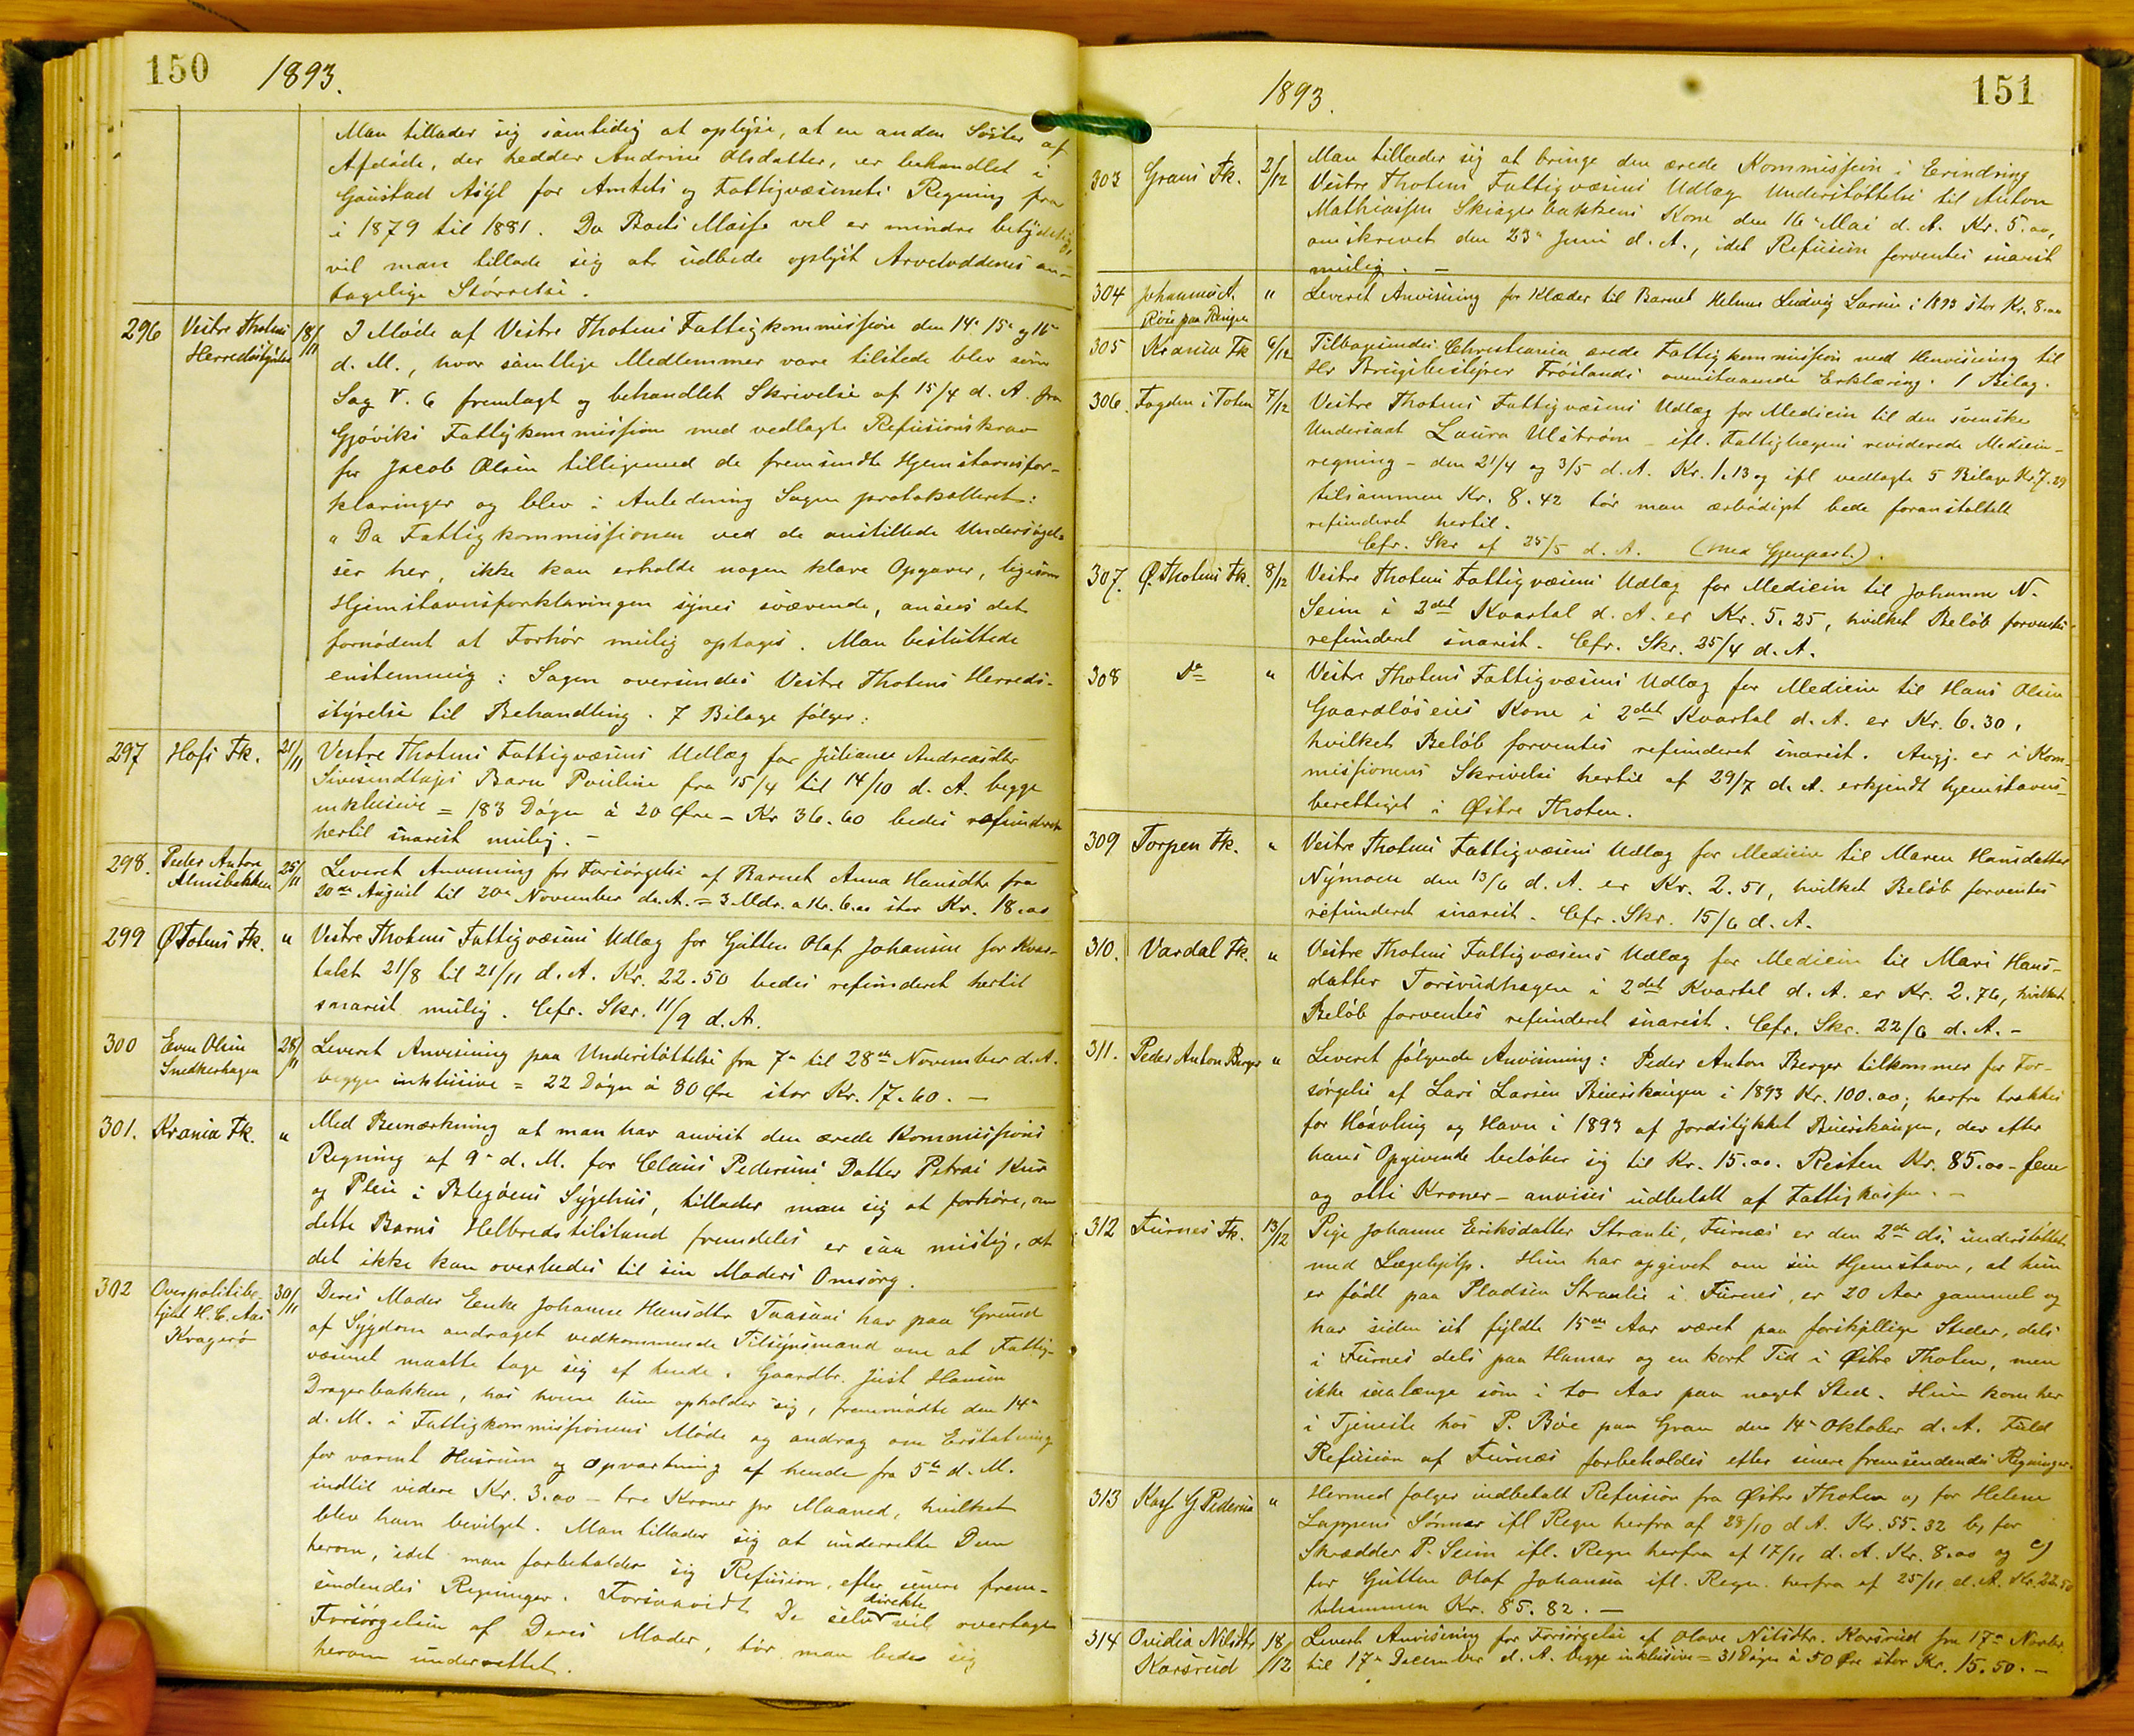 150 1893.
Man tillader sig samtidig at oplyse, at en anden Søster af
Afdøde, der hedder Andrine Olsdatter, er behandlet i
Gaustad Asyl for Amtets og Fattigvæsenets Regning fra
i 1879 til 1881. Da Boets Masse vel er mindre betydelig,
vil man tillade sig at udbede oplyst Arveloddenes an-
tagelige Størrelse.
296 Vestre Thotens Herredsstyrelse 18/11 I Møde af Vestre Thotens Fattigkommission den 14de 15de og 16de
d. M., hvor samtlige Medlemmer vare tilstede blev som
Sag N. 6 fremlagt og behandlet Skrivelse af 15/4 d. A. fra
Gjøviks Fattigkommission med vedlagte Refusionskrav
for Jacob Olsen tilligemed de fremsendte Hjemstavnsfor-
klaringer og blev i Anledning Sagen protokolleret:
"Da Fattigkommissionen ved de anstillede Undersøgel-
ser her, ikke kan erholde nogen klare Opgaver, ligesom
Hjemstavnsforklaringen synes svævende, ansees det
fornødent at Forhør mulig optages. Man besluttede
enstemmig: Sagen oversendes Vestre Thotens Herreds-
styrelse til Behandling. 7 Bilage følger:
297 Hofs Fk. 21/11 Vestre Thotens Fattigvæsens Udlæg for Juliane Andreasdtr
Sivesindtajes Barn Pouline fra 15/4 til 14/10 d. A. begge
inklusive = 183 Døgn à 20 Øre - Kr 36.60 bedes refunderet
hertil snarest mulig. -
298. Peder Anton Almsbakken 25/11 Leveret Anvisning for Forsørgelse af Barnet Anna Hansdtr fra
20de August til 20de November d. A. = 3 Mdr. a Kr. 6.00 stor Kr. 18.00
299 Ø Totens Fk. " Vestre Thotens Fattigvæsens Udlæg for Gutten Olaf Johansen for Kvar-
talet 21/8 til 21/11 d. A. Kr. 22.50 bedes refunderet hertil
snarest mulig. Cfr. Skr. 11/9 d. A.
300 Even Olsen Snedkerhagen 28/11 Leveret Anvisning paa Understøttelse fra 7de til 28de November d. A.
begge inklusive = 22 Døgn à 80 Øre stor Kr. 17.60. -
301. Krania Fk. " Med Bemærkning at man har anvist den ærede Kommissions
Regning af 9de d. M. for Claus Pedersens Datter Petras Kur
og Pleie i Blegøens Sygehus, tillader man sig at forhøre, om
dette Barns Helbredstilstand fremdeles er saa mislig, at
det ikke kan overlades til sin Moders Omsorg.
302 Overpolitibe- tjent H. C. Aas Kragerø 30/11 Deres Moder Enke Johanne Hansdtr Taasani har paa Grund
af Sygdom andraget vedkommende Tilsynsmand om at Fattig-
væsenet maatte tage sig af hende. Gaardbr. Just Hansen
Dragerbakken, hos hvem hun opholder sig, fremmødte den 14de
d. M. i Fattigkommissionens Møde og androg om Erstatning
for varmt Husrum og Opvartning af hende fra 5te d. M.
indtil videre Kr. 3.00 - tre Kroner pr Maaned, hvilket
blev ham bevilget. Man tillader sig at underrette Dem
herom, idet man forbeholder sig Refusion, efter senere frem-
sendendes Regninger. Forsaavidt De selv direkte vil overtage
Forsørgelsen af Deres Moder, tør man bede sig
herom underrettet.
1893. 151
303 Grans Fk. 2/12 Man tillader sig at bringe den ærede Kommission i Erindring
Vestre Thotens Fattigvæsens Udlæg Understøttelse til Anton
Mathiassen Skiagerbakkens Kone den 16de Mai d. A. Kr. 5.00,
omskrevet den 23de Juni d. A., idet Refusion forventes snarest
mulig. -
304 Johannes A. Røise paa Ringen " Leveret Anvisning for Klæder til Barnet Helmer Ludvig Larsen i 1893 stor Kr. 8.00
305 Krania Fk 6/12 Tilbagesendes Christiania ærede Fattigkommission med Henvisning til
Hr Brugsbestyrer Frøslands ovenstaaende Erklæring. 1 Bilag.
306. Fogden i Toten 7/12 Vestre Thotens Fattigvæsens Udlæg for Medicin til den svenske
Undersaat Laura Ulstrøm - ifl. Fattiglægens reviderede Medicin-
regning - den 21/4 og 3/5 d. A. Kr. 1.13 og ifl vedlagte 5 Bilage Kr. 7.29
tilsammen Kr. 8.42 tør man ærbødigst bede foranstaltet
refunderet hertil.
Cfr. Skr af 25/5 d. A. (med Gjenpart.).
307. Ø. Thotens Fk. 8/12 Vestre Thotens Fattigvæsens Udlæg for Medicin til Johanne N.
Seim i 2det Kvartal d. A. er Kr. 5.25, hvilket Beløb forventes
refunderet snarest. Cfr. Skr. 25/4 d. A.
308 do " Vestre Thotens Fattigvæsens Udlæg for Medicin til Hans Olsen
Gaardløseies Kone i 2det Kvartal d. A. er Kr. 6.30,
hvilket Beløb forventes refunderet snarest. Angj. er i Kom-
missionens Skrivelse hertil af 29/7 d. A. erkjendt hjemstavns-
berettiget i Østre Thoten.
309 Torpen Fk. " Vestre Thotens Fattigvæsens Udlæg for Medicin til Maren Hansdatter
Nymoen den 13/6 d. A. er Kr. 2.51, hvilket Beløb forventes
refunderet snarest. Cfr. Skr. 15/6 d. A.
310. Vardal Fk. " Vestre Thotens Fattigvæsens Udlæg for Medicin til Mari Hans-
datter Torsrudhagen i 2det Kvartal d. A. er Kr. 2.76, hvilket
Beløb forventes refunderet snarest. Cfr. Skr. 22/6 d. A. -
311. Peder Anton Berger " Leveret følgende Anvisning: Peder Anton Berger tilkommer for For-
sørgelse af Lars Larsen Biuerskaugen i 1893 Kr. 100.00; herfra trækkes
for Høavling og Havn i 1893 af Jordstykket Biuerskaugen, der efter
hans Opgivende beløber sig til Kr. 15.00. Resten Kr. 85.00 - fem
og otti Kroner - anvises udbetalt af Fattigkassen. -
312 Furnes Fk. 13/12 Pige Johanne Eriksdatter Stranli, Furnæs er den 2de ds. understøttet
med Lægehjelp. Hun har opgivet om sin Hjemstavn, at hun
er født paa Pladsen Stranlie i Furnes, er 20 Aar gammel og
har siden sit fyldte 15de Aar været paa forskjellige Steder, dels
i Furnes dels paa Hamar og en kort Tid i Østre Thoten, men
ikke saalænge som i to Aar paa noget Sted. Hun kom her
i Tjeneste hos P. Bøe paa Gran den 14de Oktober d. A. Fuld
Refusion af Furnæs forbeholdes efter senere fremsendendes Regninger.
313 Kass. G. Pedersen " Hermed følger indbetalt Refusion fra Østre Thoten a, for Helene
Lappens Sønner ifl Regn herfra af 28/10 d A. Kr. 55.32 b, for
Skrædder P. Seim ifl. Regn herfra af 17/11 d. A. Kr. 8.00 og c)
for Gutten Olaf Johansen ifl. Regn. herfra af 25/11 d. A. Kr. 22.50
tilsammen Kr. 85.82. -
314 Ovidia Nilsdtr Karsrud 18/12 Leveret Anvisning for Forsørgelse af Olave Nilsdtr. Karsrud fra 17de Novbr.
til 17de December d. A. begge inklusive = 31 Døgn à 50 Øre stor Kr. 15.50. -